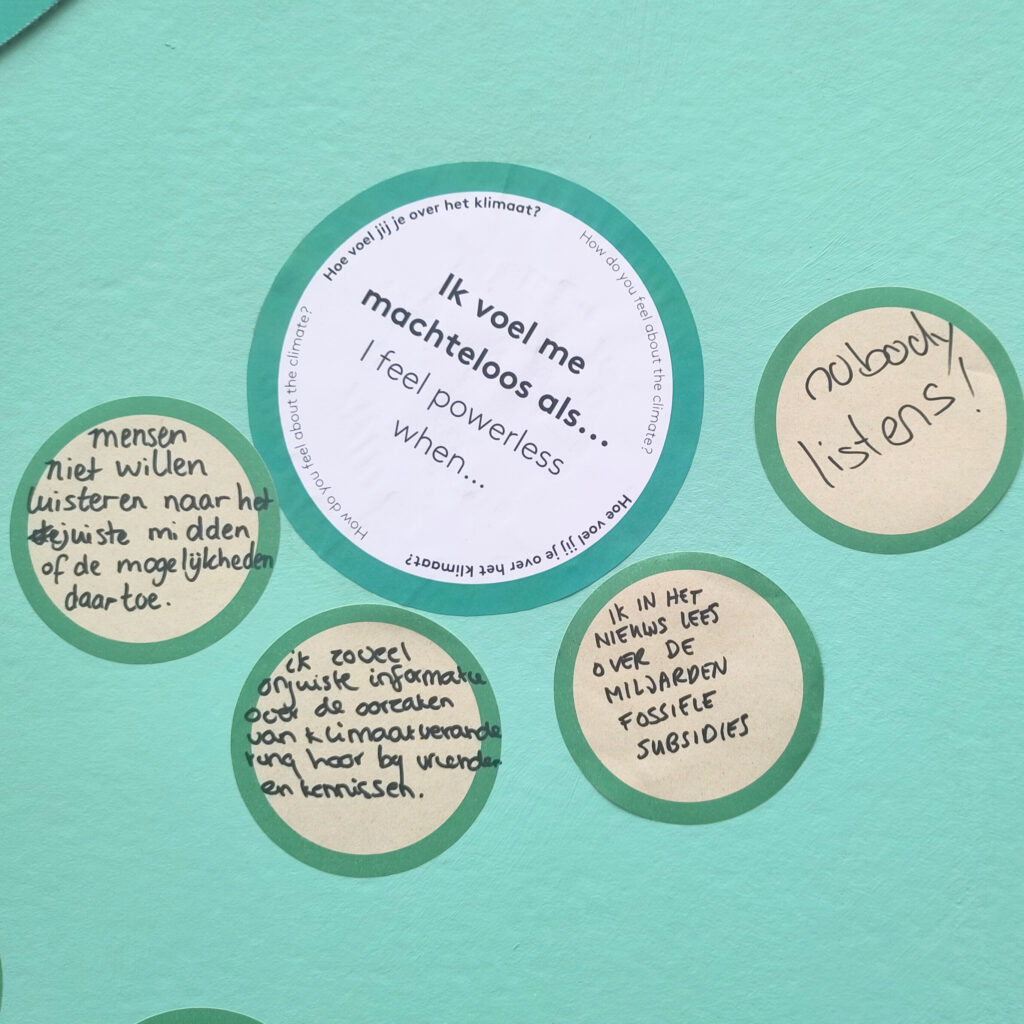 Hoe voel jij je over het klimaat?
How do you feel about the climate?
Hoe voel jij je over het klimaat?
How do you feel about the climate?
Ik voel me
machteloos als...
I feel powerless
when...
nobody
listens!
mensen
niet willen
luisteren naar het
juiste midden
of de mogelijkheden
daartoe.
ik zoveel
onjuiste informatie
over de oorzaken
van klimaatverande
ring hoor bij vrienden
en kennissen.
IK IN HET
NIEUWS LEES
OVER DE
MILJARDEN
FOSSIELE
SUBSIDIES